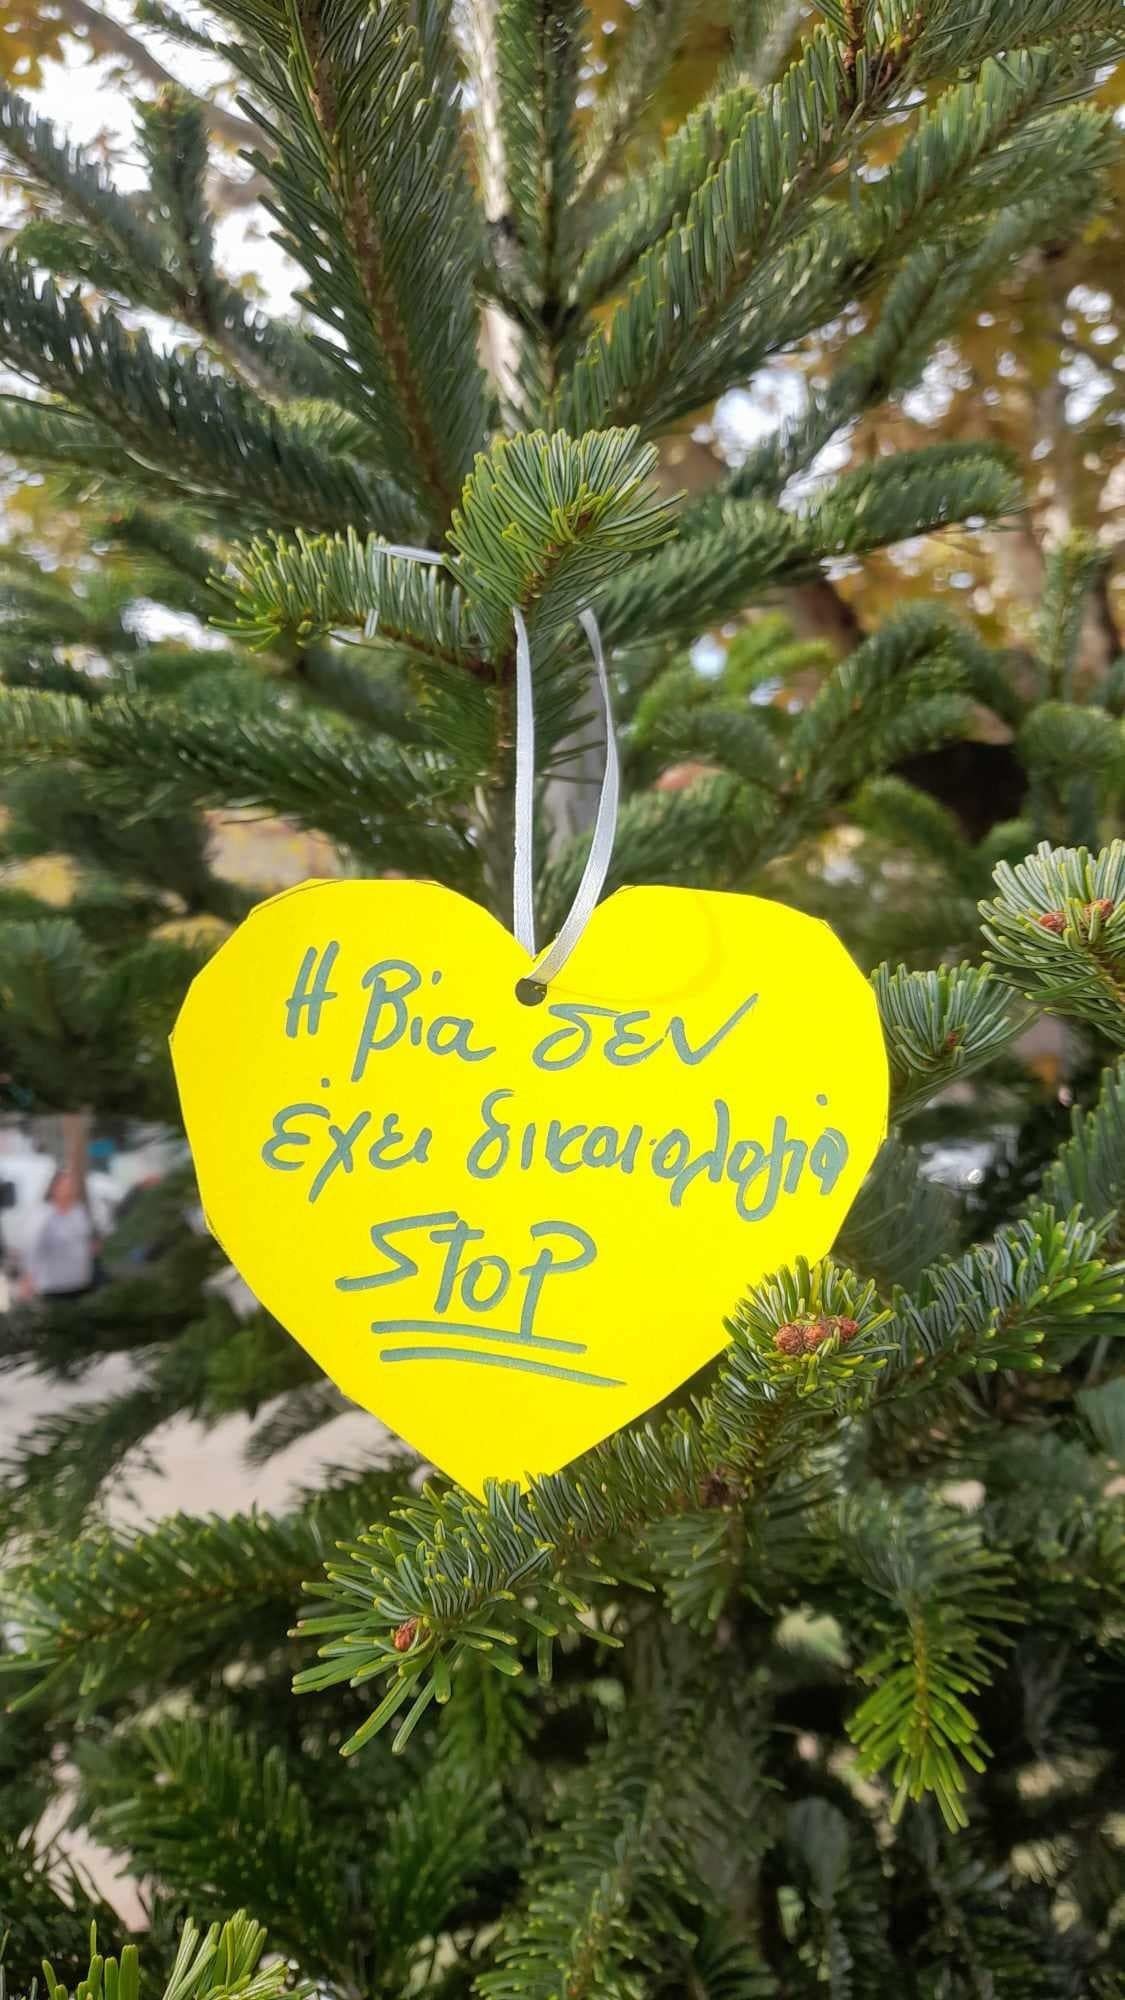 Η βία δεν
έχει δικαιολογία
STOP